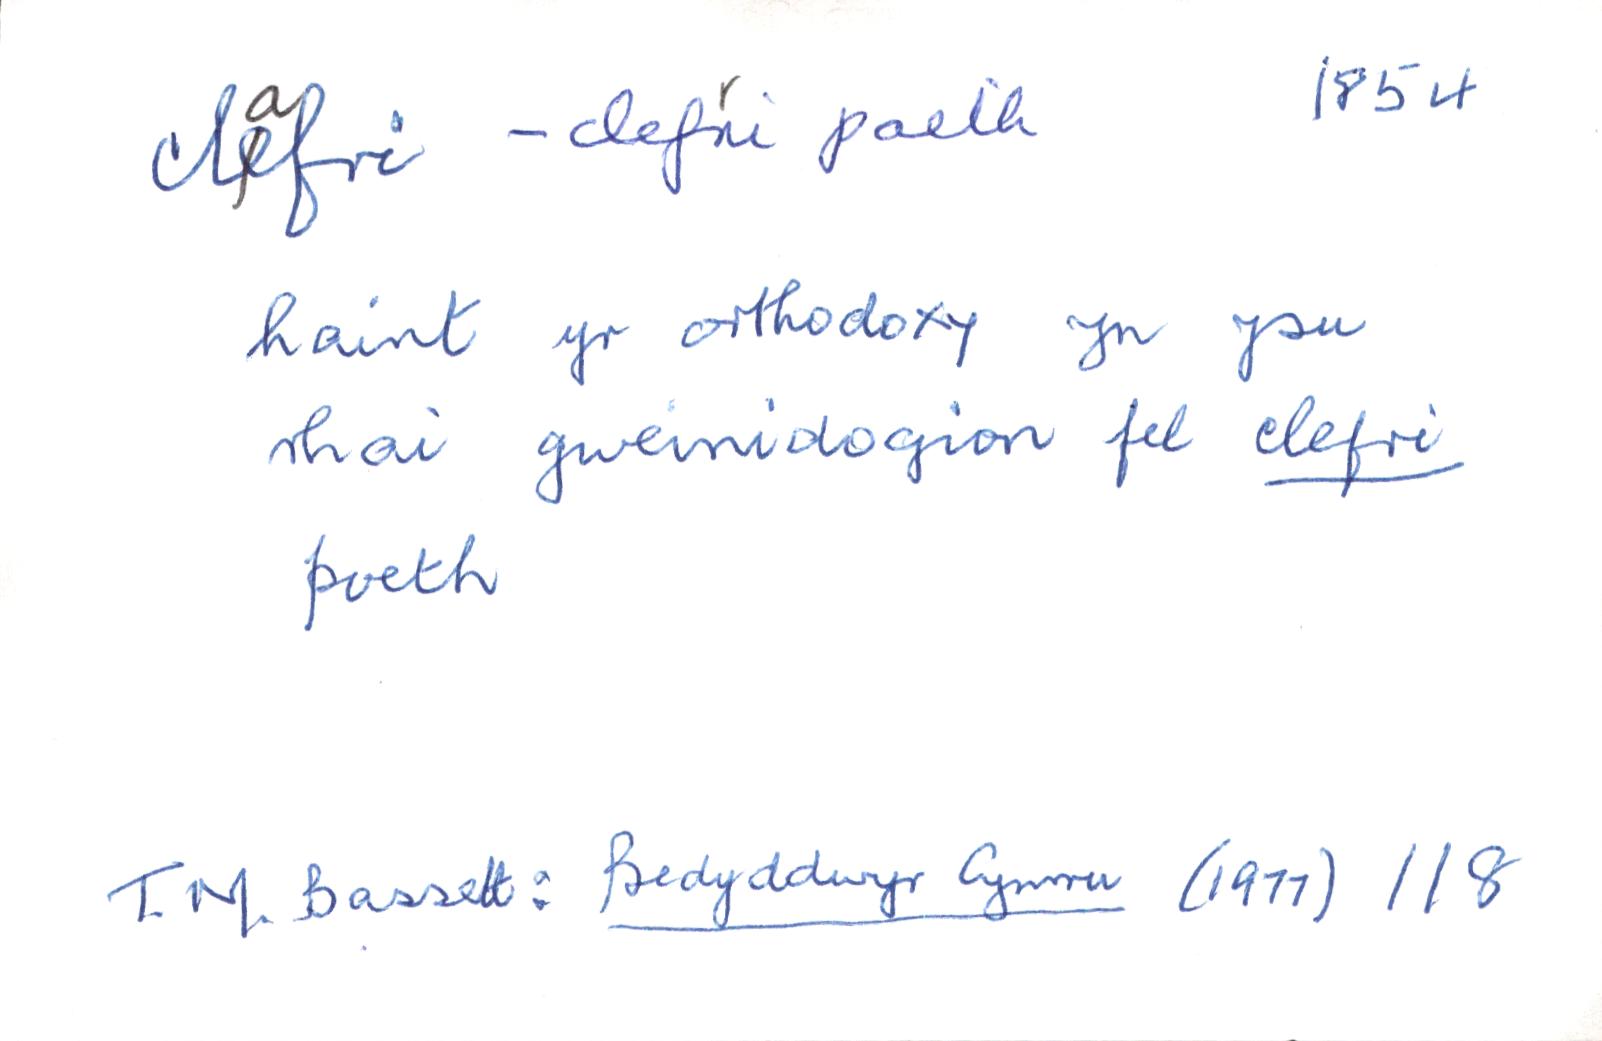 clafri - clefri poeth 1854
haint yr orthodoxy yn ysu
rhai gweinidogion fel clefri
poeth
T. M. Bassett: Bedyddwyr Cymru (1977) 118